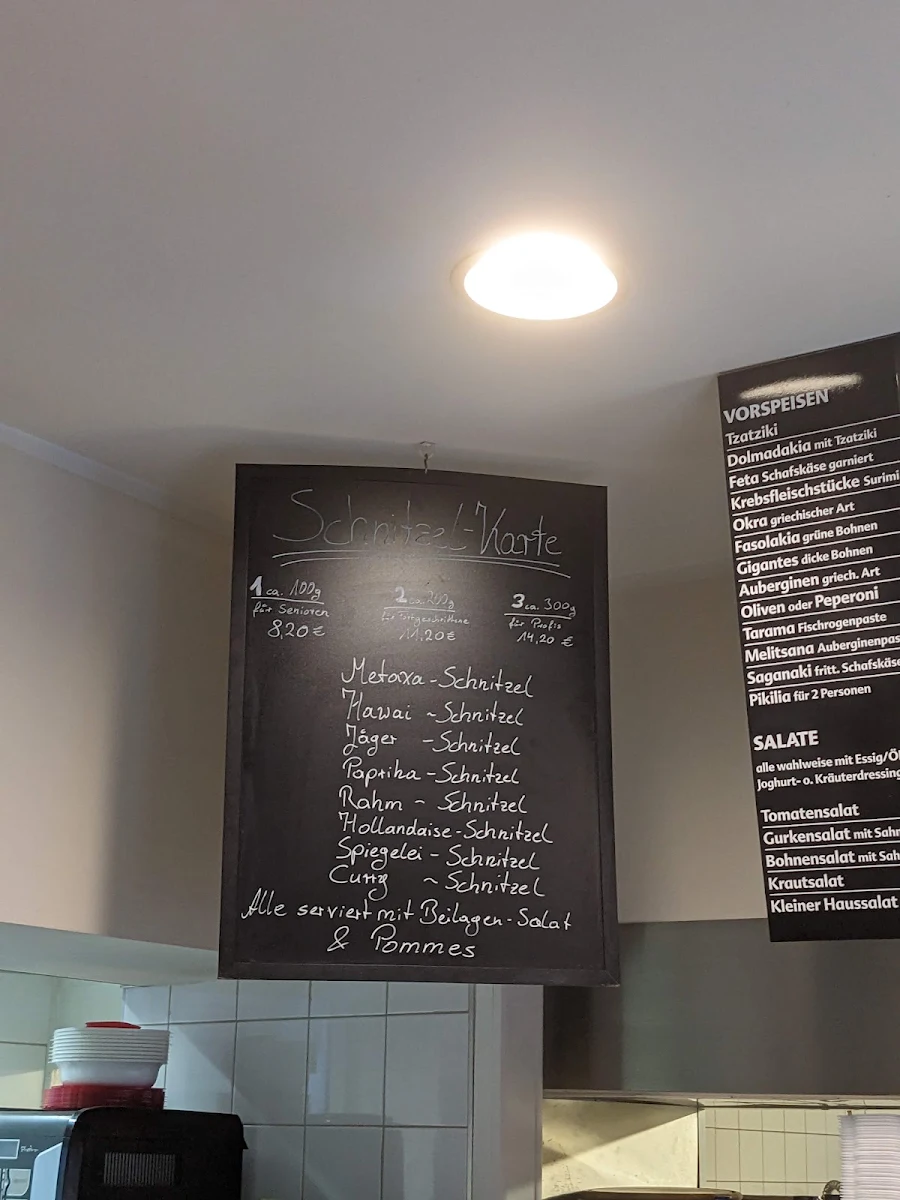 Schnitzel-Karte
1 ca. 100g
für Senioren
8,20€
2 ca. 200g
für Fortgeschrittene
11,20€
3 ca. 300g
für Profis
14,20 €
Metaxa-Schnitzel
Hawai - Schnitzel
Jäger - Schnitzel
Paprika - Schnitzel
Rahm - Schnitzel
Hollandaise-Schnitzel
Spiegelei - Schnitzel
Curry - Schnitzel
Alle serviert mit Beilagen-Salat
& Pommes
VORSPEISEN
Tzatziki
Dolmadakia mit Tzatziki
Feta Schafskäse garniert
Krebsfleischstücke Surimi
Okra griechischer Art
Fasolakia grüne Bohnen
Gigantes dicke Bohnen
Auberginen griech. Art
Oliven oder Peperoni
Tarama Fischrogenpaste
Melitsana Auberginenpas
Saganaki fritt. Schafskäse
Pikilia für 2 Personen
SALATE
alle wahlweise mit Essig/Öl
Joghurt- o. Kräuterdressing
Tomatensalat
Gurkensalat mit Sahn
Bohnensalat mit Sah
Krautsalat
Kleiner Haussalat